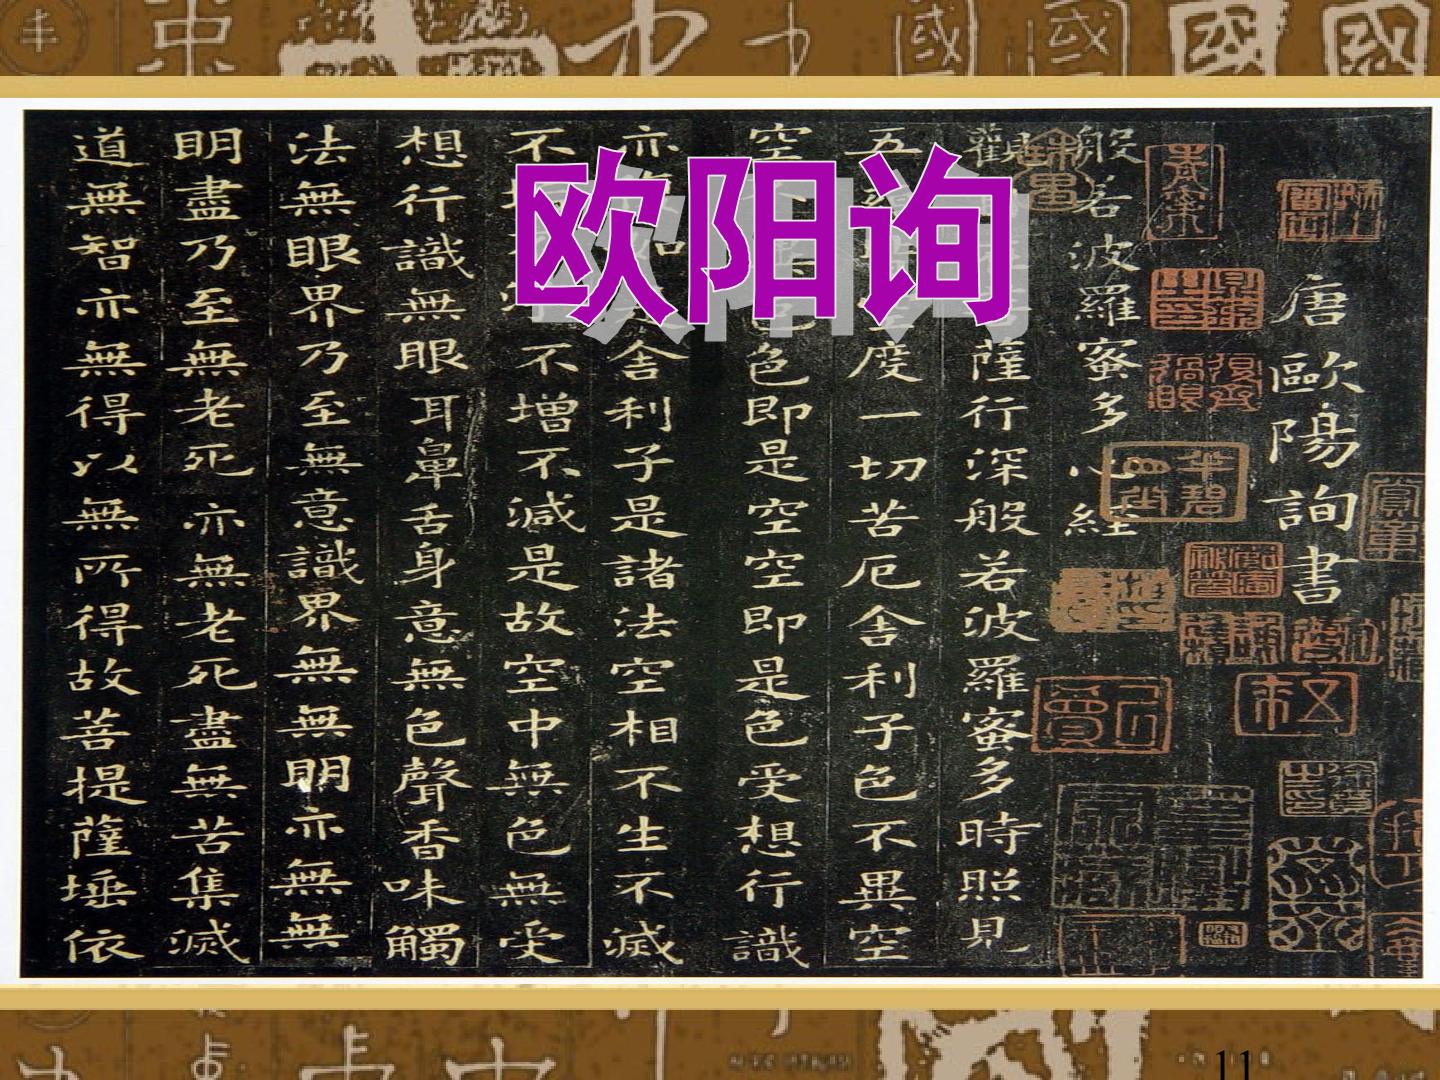 欧阳询
唐歐陽詢書
般若波羅蜜多心經
觀 薩行深般若波羅蜜多時照見
五 度一切苦厄舍利子色不異空
空 色即是空空即是色受想行識
亦 舍利子是諸法空相不生不滅
不 不增不減是故空中無色無受
想行識無眼耳鼻舌身意無色聲香味觸
法無眼界乃至無意識界無無明亦無無
明盡乃至無老死亦無老死盡無苦集滅
道無智亦無得以無所得故菩提薩埵依
11